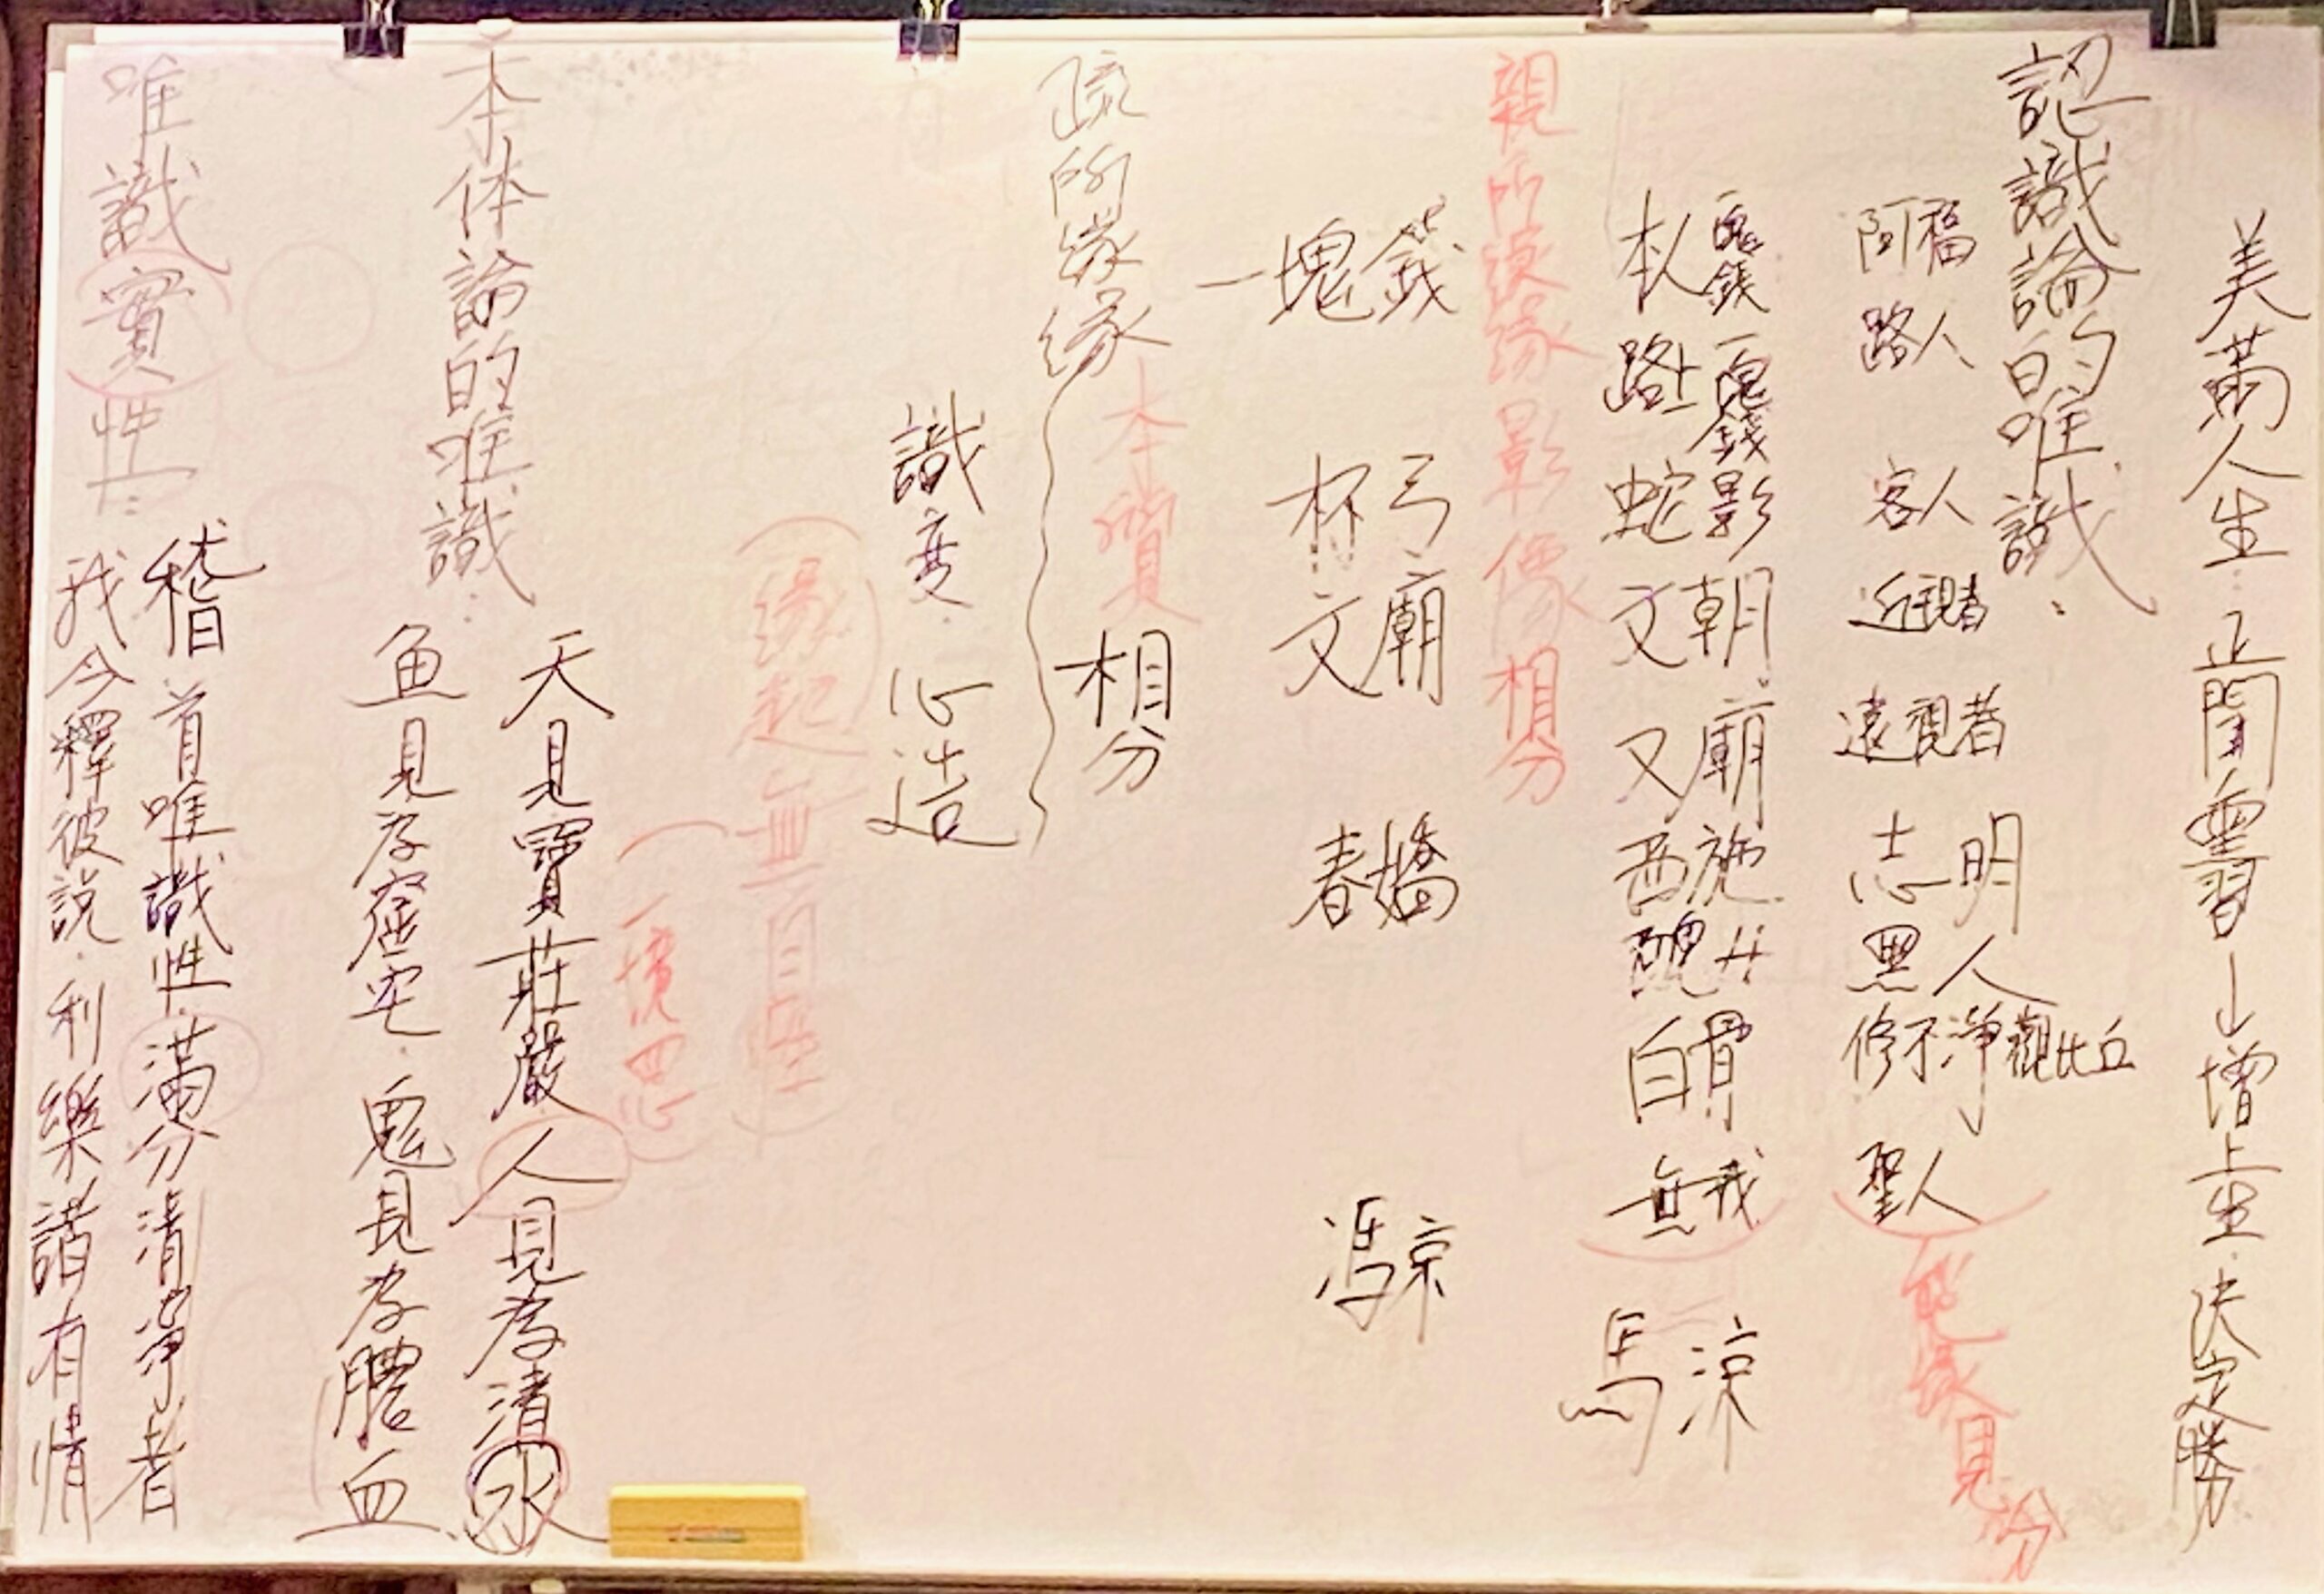 美滿人生：正聞熏習→增上生、決定勝
認識論的唯識：
阿福 路人 客人 近視者 遠視者 志明 黑人 修不淨觀比丘 聖人
能緣見分
一塊錢 一塊錢 蛇影 文朝 又廟 西施 醜女 白骨 無我 馬涼
本人 路上
親所緣緣 影像 相分
一塊錢 杯弓 文廟 春嬌 馮京
疏所緣緣 本質 相分
識變 心造
(緣起無自性)
(一境四心)
本体論的唯識：
天見寶莊嚴 人見為清水
魚見為窟宅 鬼見為膿血
唯識實性：
稽首唯識性 滿分清淨者
我今釋彼說 利樂諸有情